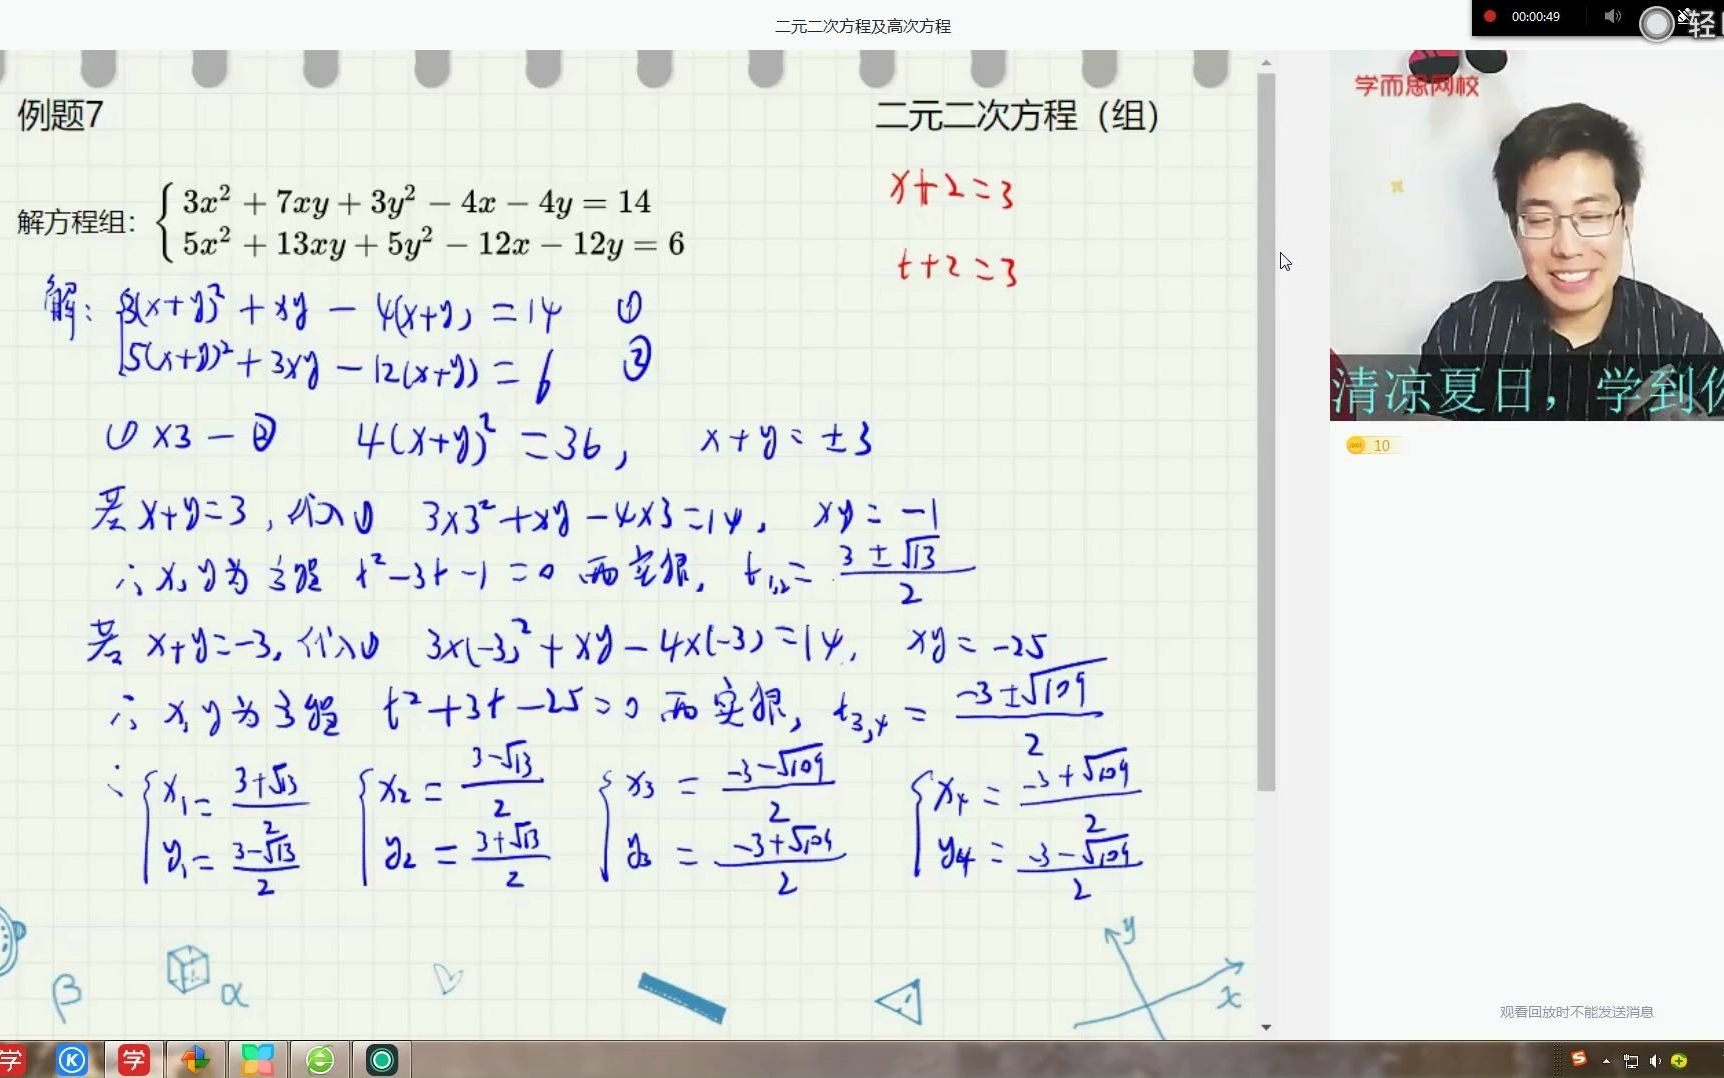 二元二次方程及高次方程
00:00:49
轻
例题7
二元二次方程（组）
学而思网校
解方程组： { 3x² + 7xy + 3y² − 4x − 4y = 14
5x² + 13xy + 5y² − 12x − 12y = 6
x+2=3
t+2=3
解: 3(x+y)² + xy − 4(x+y) = 14 ①
5(x+y)² + 3xy − 12(x+y) = 6 ②
① ×3 − ② 4(x+y)² = 36, x+y = ±3
若 x+y=3, 代入① 3×3²+xy−4×3=14, xy = −1
∴ x, y 为方程 t²−3t−1=0 两实根, t₁,₂ = (3±√13)/2
若 x+y=−3, 代入① 3×(−3)²+xy−4×(−3)=14, xy = −25
∴ x, y 为方程 t²+3t−25=0 两实根, t₃,₄ = (−3±√109)/2
∴ { x₁ = (3+√13)/2 { x₂ = (3−√13)/2 { x₃ = (−3−√109)/2 { x₄ = (−3+√109)/2
y₁ = (3−√13)/2 y₂ = (3+√13)/2 y₃ = (−3+√109)/2 y₄ = (−3−√109)/2
清凉夏日，学到
10
β
α
y
x
观看回放时不能发送消息
学
K
学
S